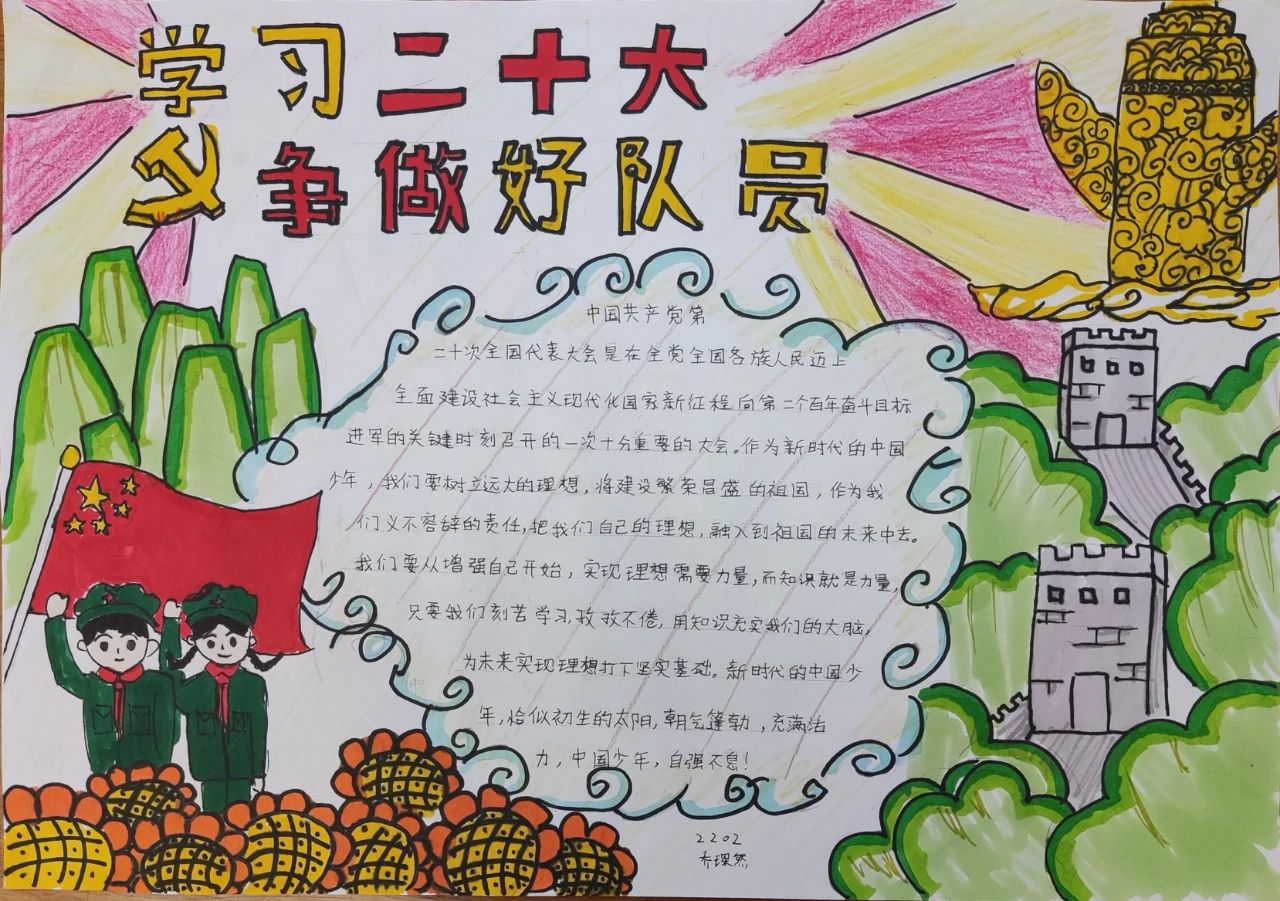 学习二十大
争做好队员
中国共产党第
二十次全国代表大会是在全党全国各族人民迈上
全面建设社会主义现代化国家新征程向第二个百年奋斗目标
进军的关键时刻召开的一次十分重要的大会。作为新时代的中国
少年，我们要树立远大的理想，将建设繁荣昌盛的祖国，作为我
们义不容辞的责任，把我们自己的理想，融入到祖国的未来中去。
我们要从增强自己开始，实现理想需要力量，而知识就是力量，
只要我们刻苦学习，孜孜不倦，用知识充实我们的大脑，
为未来实现理想打下坚实基础。新时代的中国少
年，恰似初生的太阳，朝气蓬勃，充满活
力，中国少年，自强不息！
2202
乔琛然